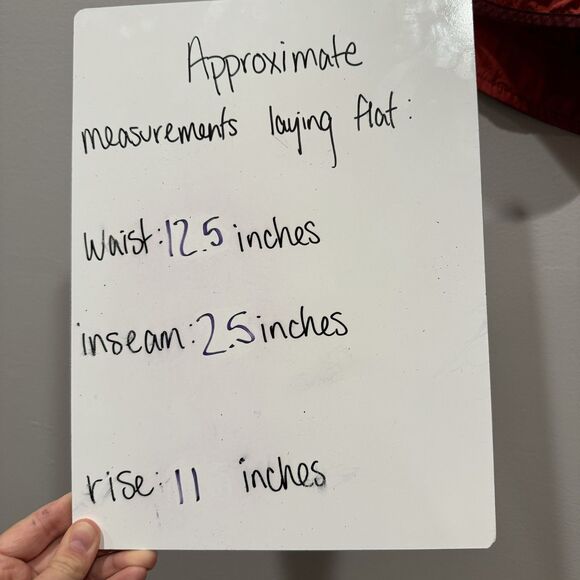 Approximate
measurements laying flat:
Waist: 12.5 inches
inseam: 2.5 inches
rise: 11 inches